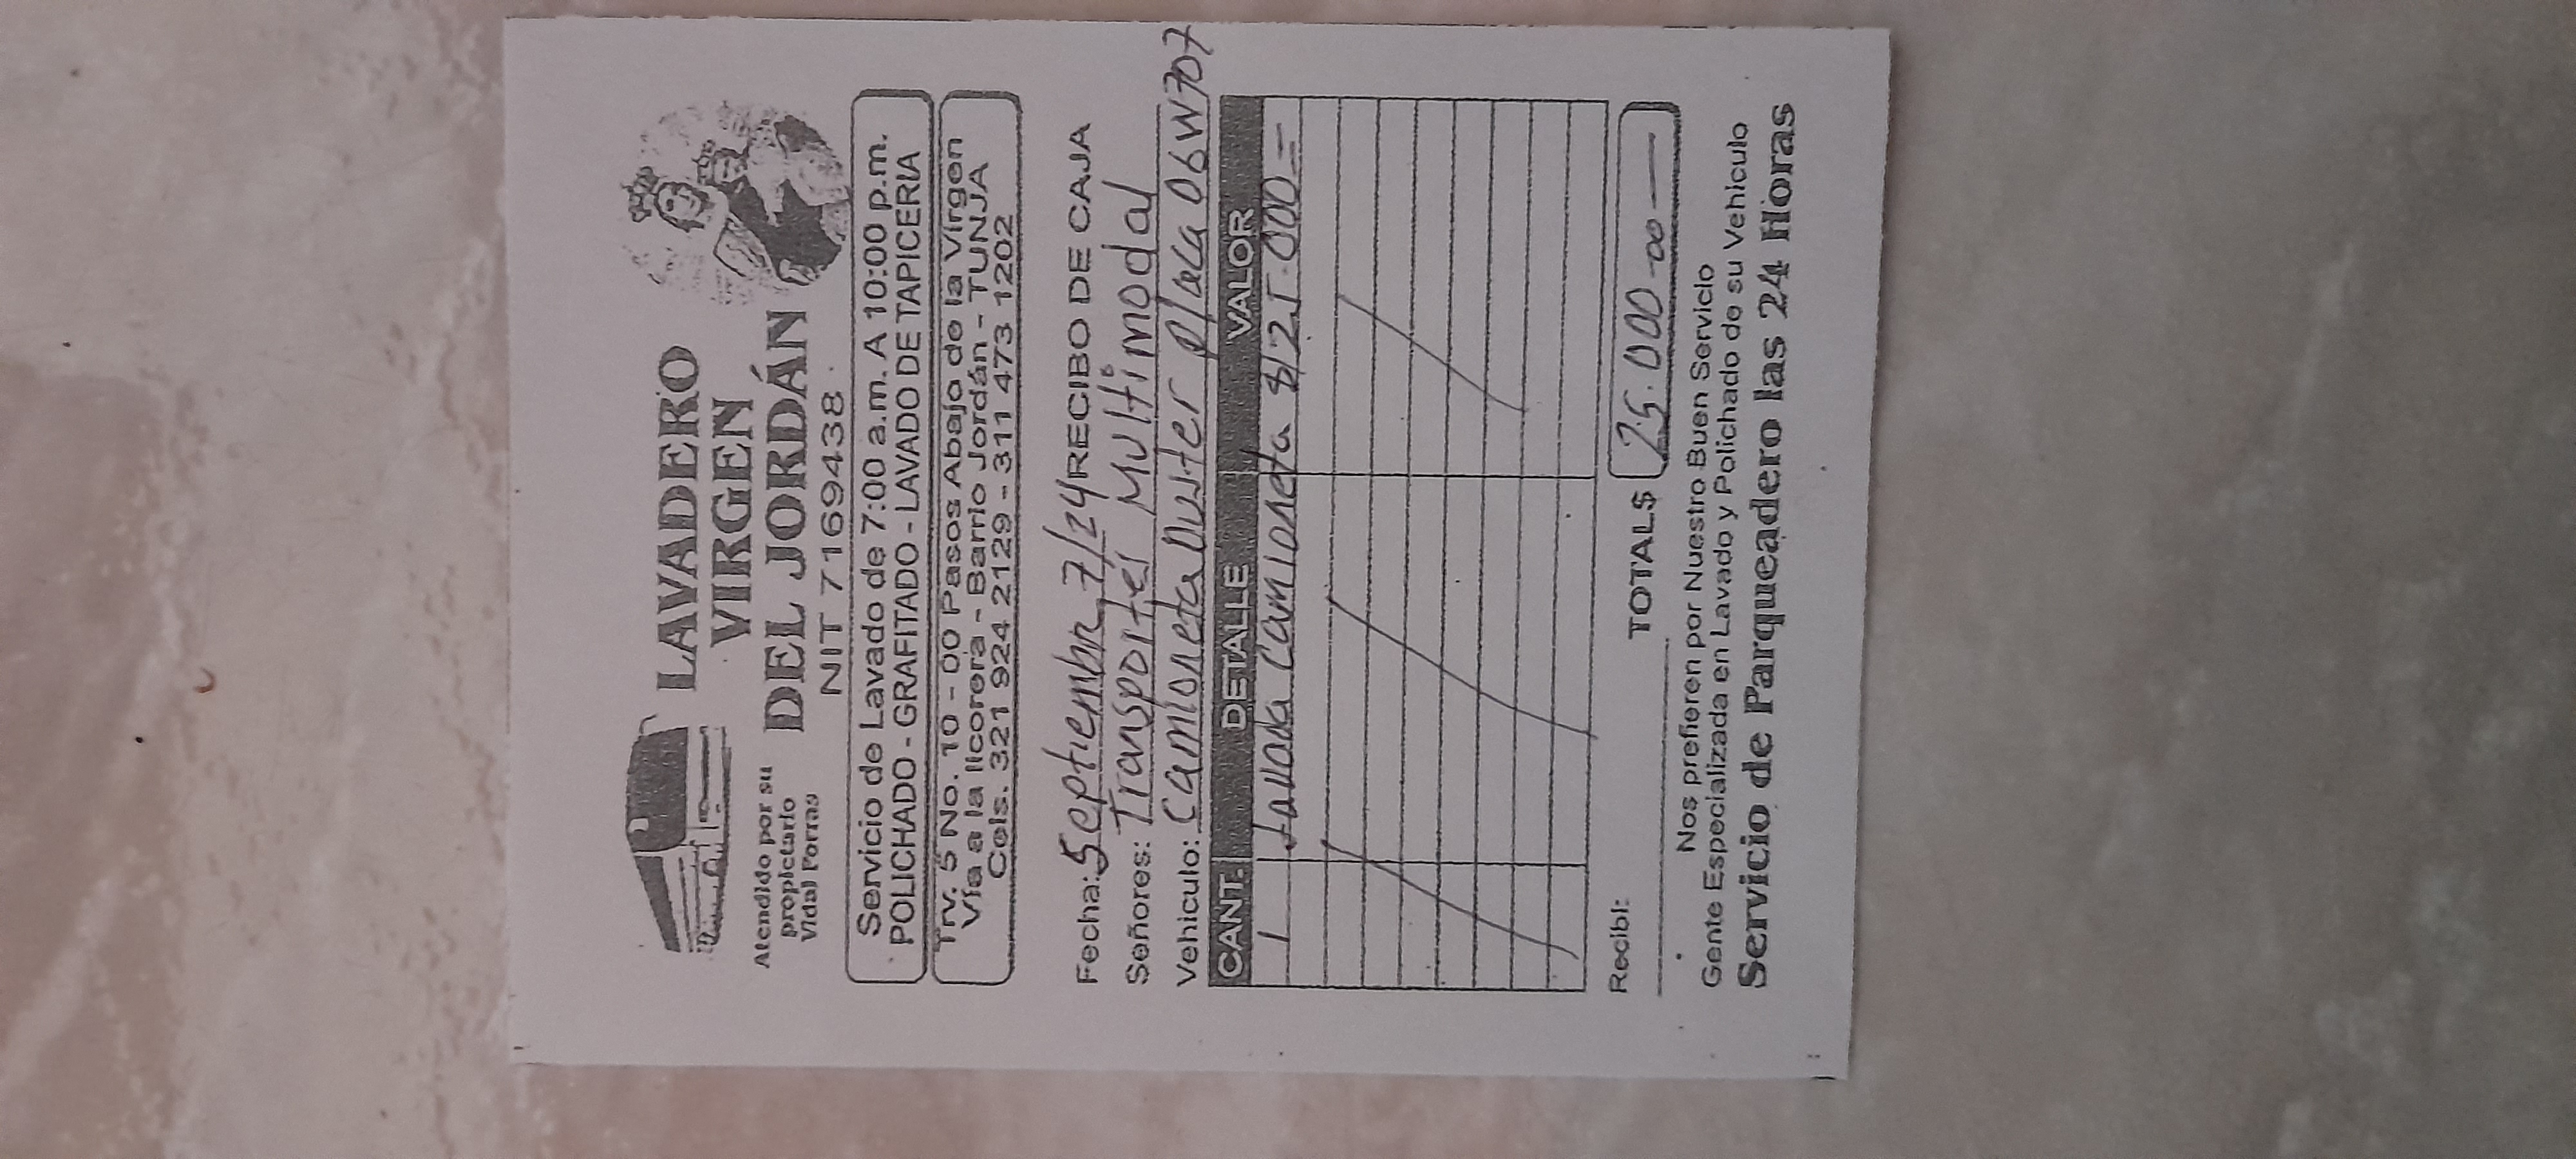 LAVADERO
VIRGEN
DEL JORDÁN
NIT 7169438
Atendido por su
propietario
Vidal Porras
Servicio de Lavado de 7:00 a.m. A 10:00 p.m.
POLICHADO - GRAFITADO - LAVADO DE TAPICERIA
Trv. 5 No. 10 - 00 Pasos Abajo de la Virgen
Vía a la licorera - Barrio Jordán - TUNJA
Cels. 321 924 2129 - 311 473 1202
Fecha: Septiembre 7/24 RECIBO DE CAJA
Señores: Transportes Multimodal
Vehiculo: Camioneta Duster placa
CANT. DETALLE VALOR
1 Lavada Camioneta $ 25.000=
Recibí: TOTAL $ 25.000-00
Nos prefieren por Nuestro Buen Servicio
Gente Especializada en Lavado y Polichado de su Vehículo
Servicio de Parqueadero las 24 Horas